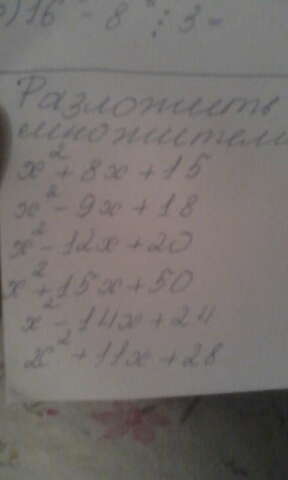 ) 16 - 8 : 3 =
Разложить
множители
x² + 8x + 15
x² - 9x + 18
x² - 12x + 20
x² + 15x + 50
x² - 14x + 24
x² + 11x + 28